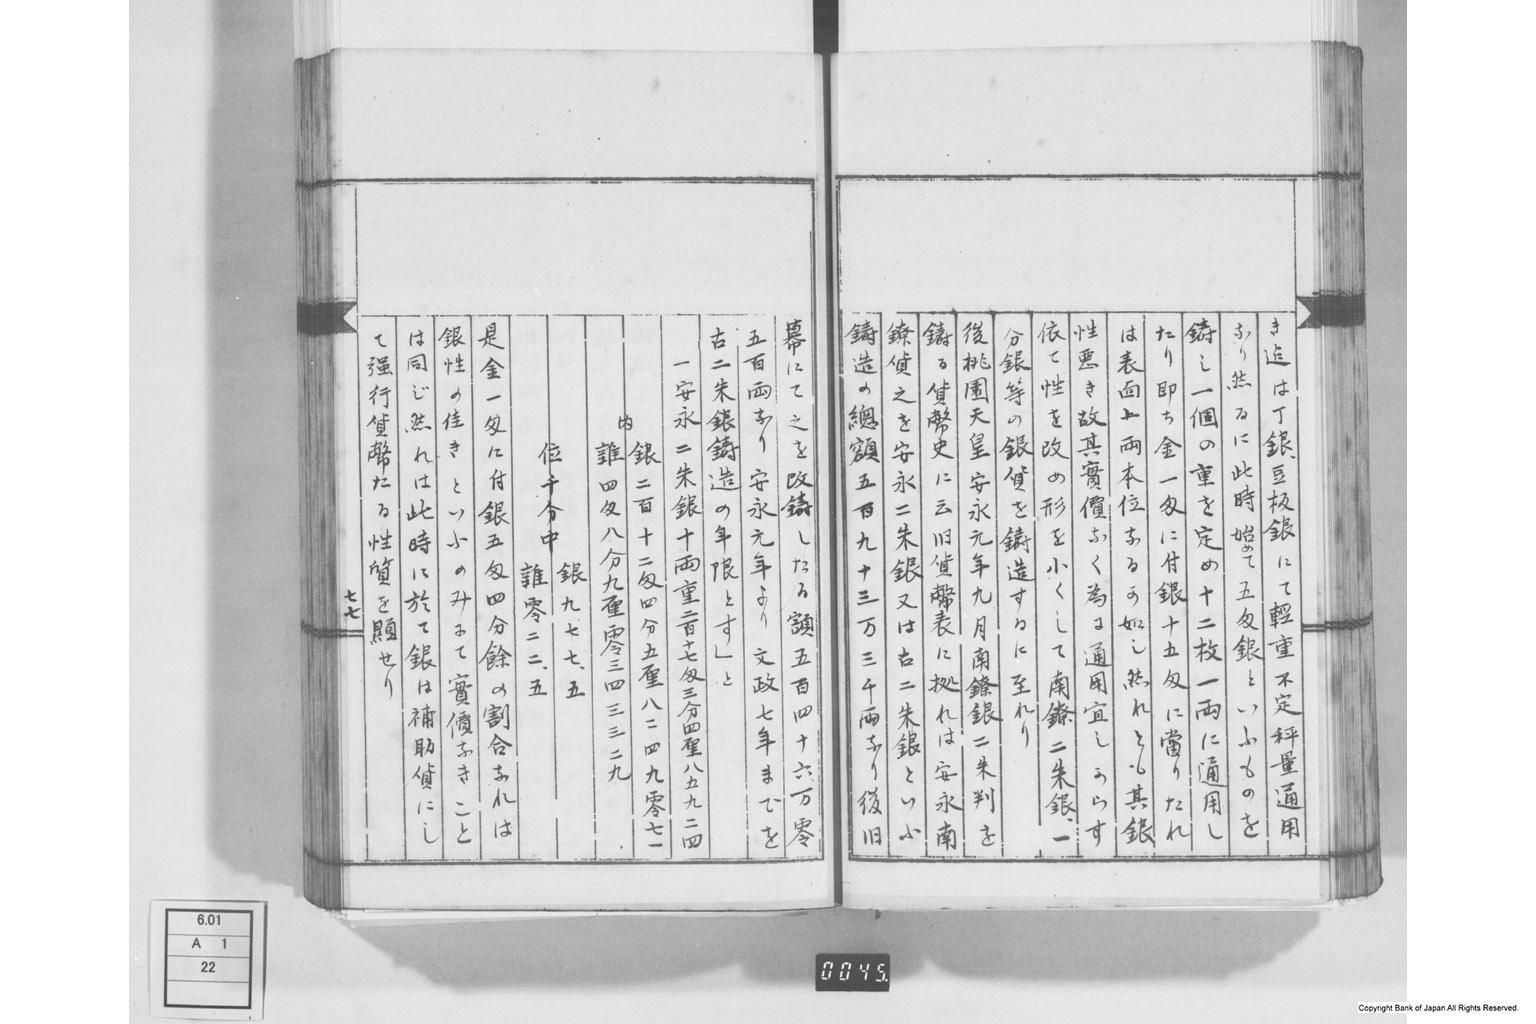 き迄は丁銀、豆板銀にて輕重不定秤量通用
なり然るに此時始めて五匁銀といふものを
鋳し一個の重を定め十二枚一両に通用し
たり即ち金一匁に付銀十五匁に當りたれ
は表面上両本位なるの如し然れとも其銀
性悪き故其實價なく為に通用宜しからす
依て性を改め形を小くして南鐐二朱銀、一
分銀等の銀貨を鑄造するに至れり
後桃園天皇安永元年九月南鐐銀二朱判を
鑄る貨幣史に云旧貨幣表に拠れは安永南
鐐貨之を安永二朱銀又は古二朱銀といふ
鑄造の總額五百九十三万三千両なり後旧
幕にて之を改鑄したる額五百四十六万零
五百両なり安永元年より文政七年までを
古二朱銀鑄造の年限とす」と
一安永二朱銀十両重二百十七匁三分四厘八五九二四
内
銀二百十二匁四分五厘八二四九零七一
雑四匁八分九厘零三四三三二九
位千分中
銀九七七、五
雑零二二、五
是金一匁に付銀五匁四分餘の割合なれは
銀性の佳きといふのみにて實價なきこと
は同じ然れは此時に於て銀は補助貨にし
て强行貨幣たる性質を顯せり
七七
6.01
A 1
22
0045
Copyright Bank of Japan All Rights Reserved.